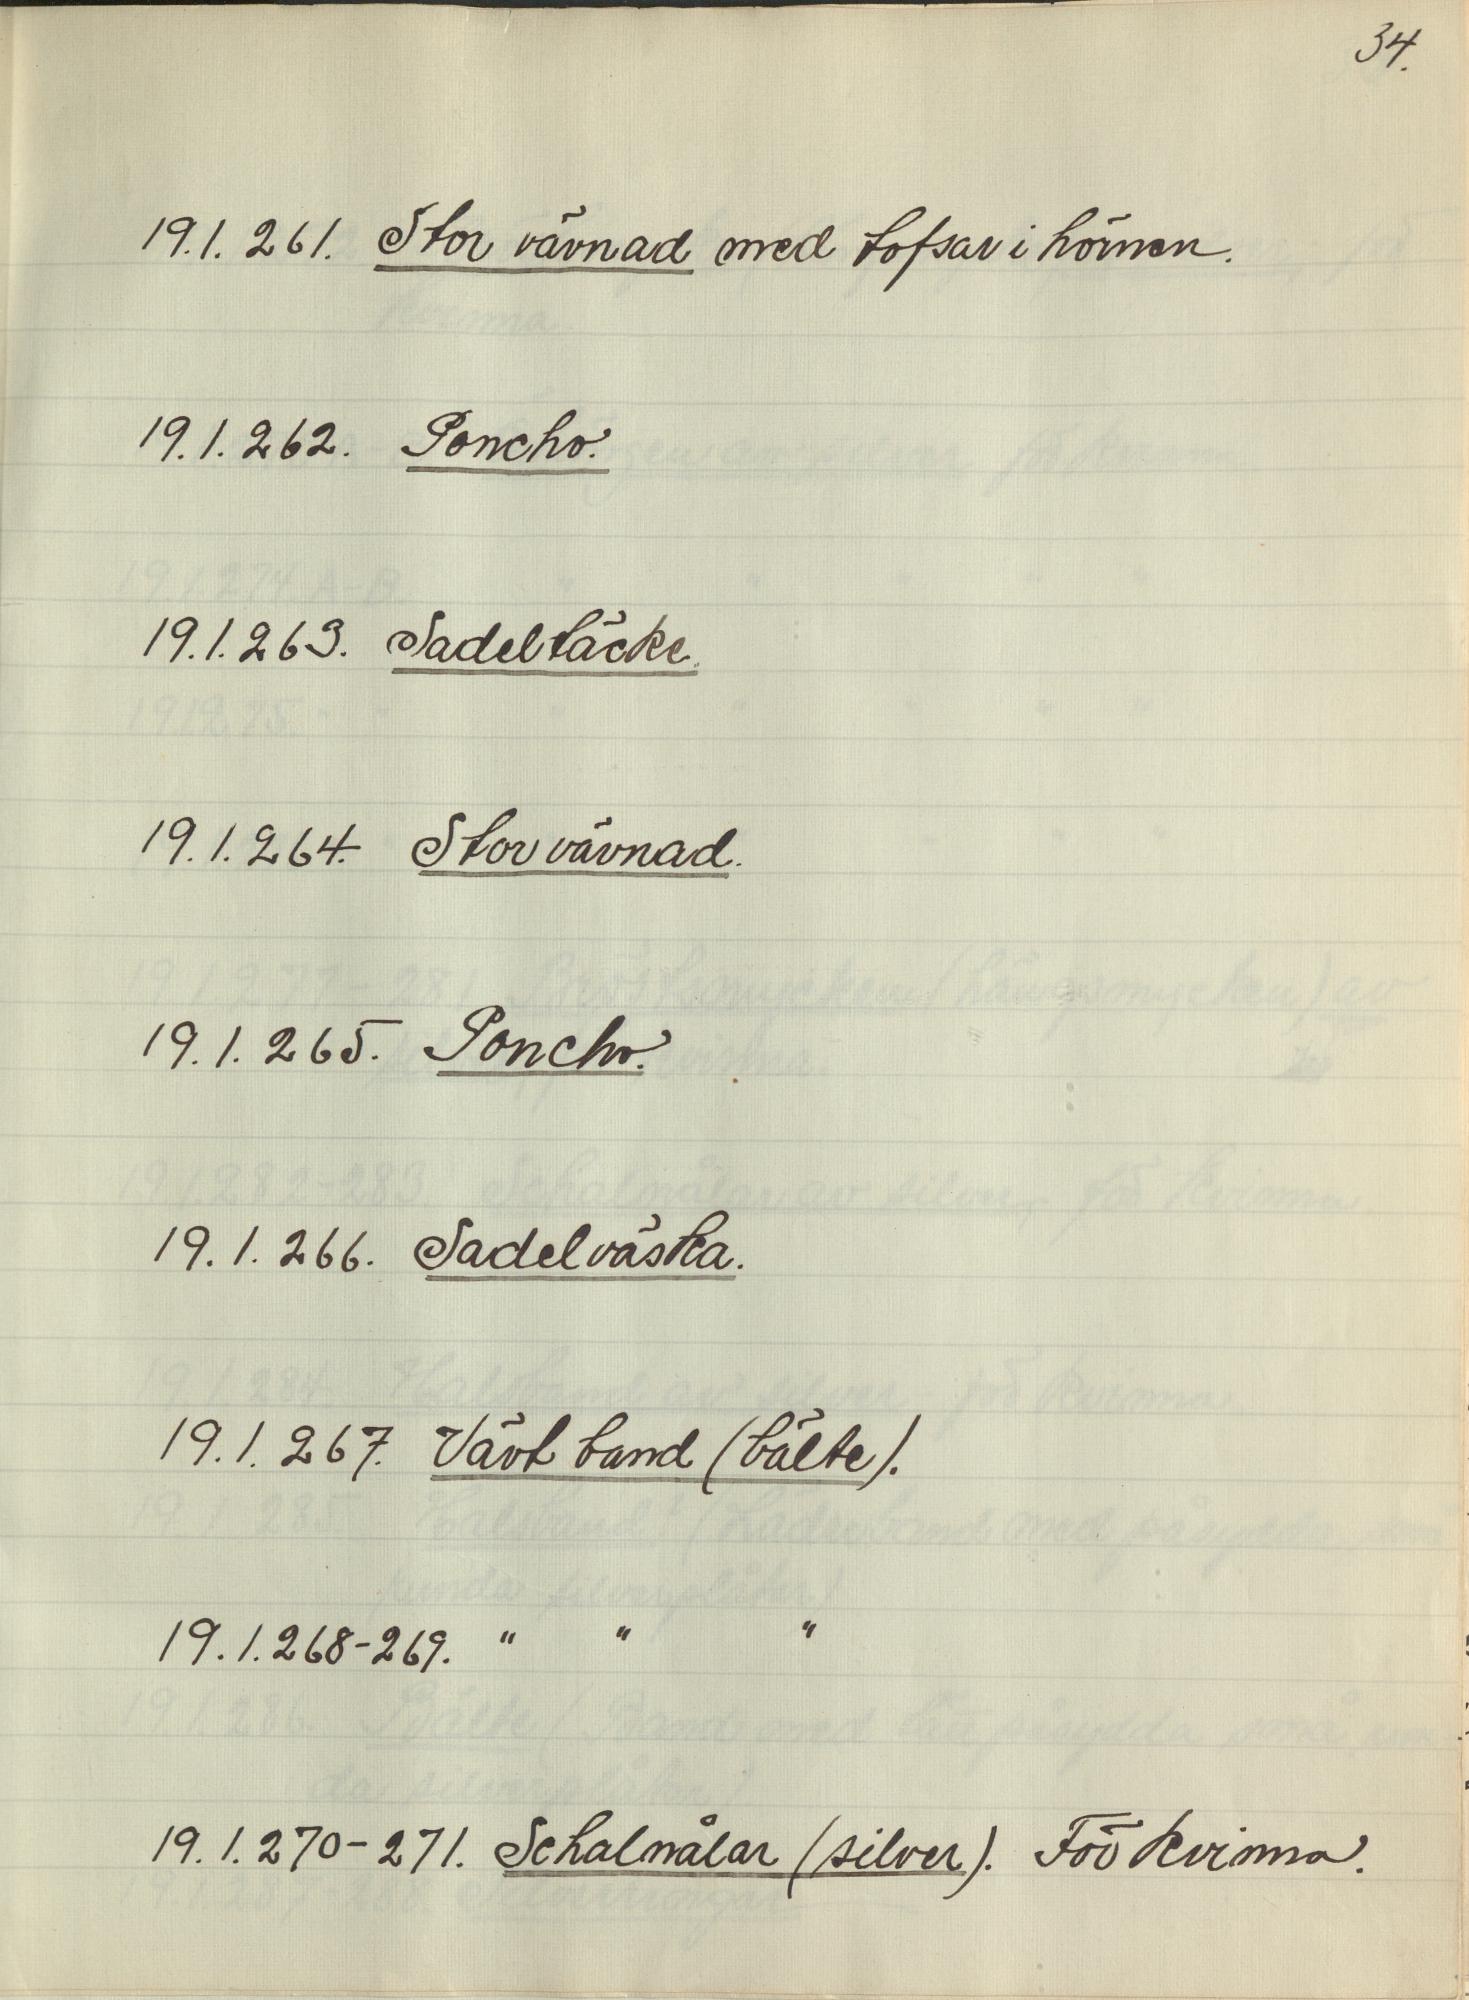 34.
19.1.261. Stor vävnad med tofsar i hörnen.
19.1.262. Poncho.
19.1.263. Sadeltäcke.
19.1.264. Stor vävnad.
19.1.265. Poncho.
19.1.266. Sadelväska.
19.1.267. Vävt band (bälte).
19.1.268-269. " " "
19.1.270-271. Schalnålar (silver). För kvinna.